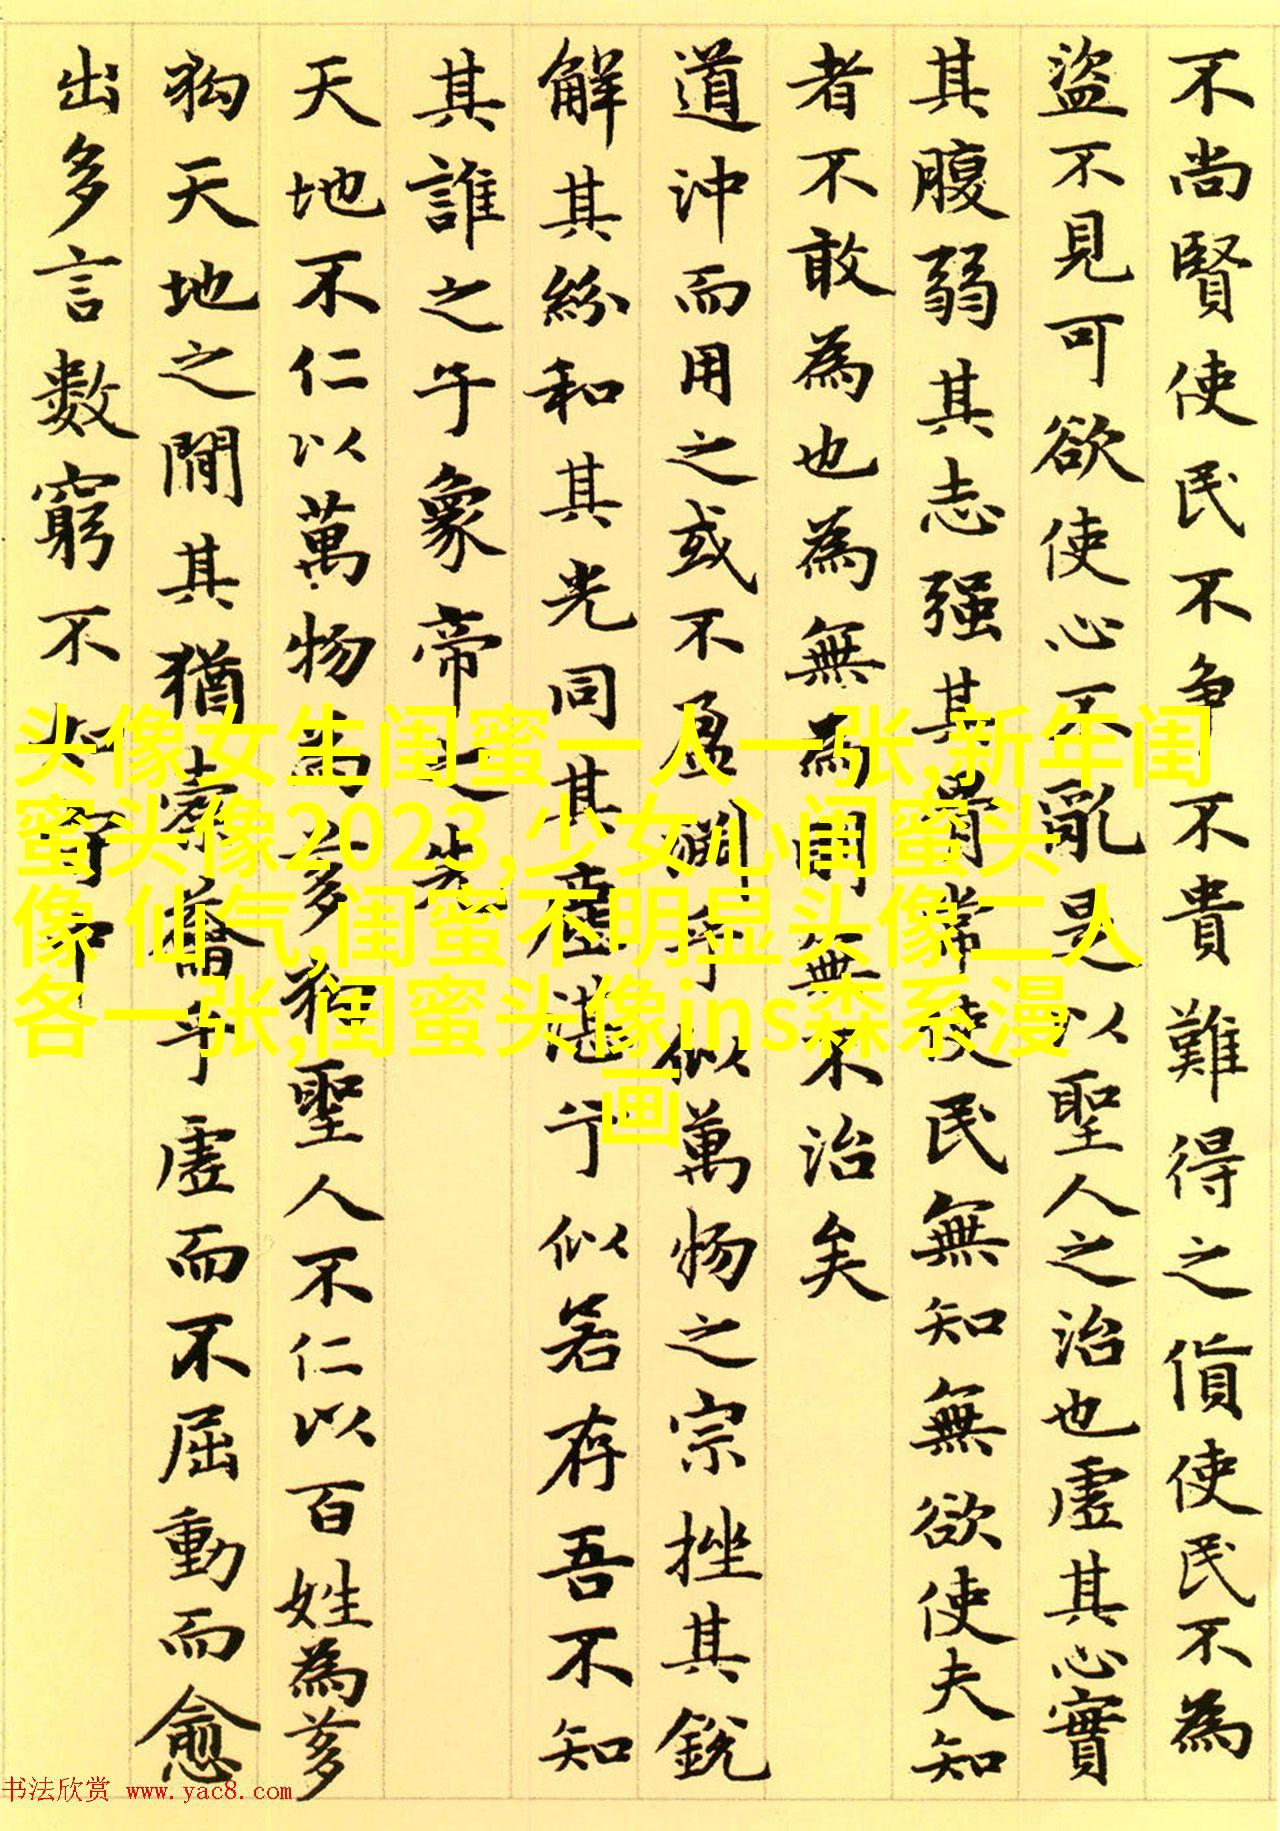 不尚賢使民不争不貴難得之貨使民不為
盜不見可欲使心不亂是以聖人之治也虛其心實
其腹弱其志强其骨常使民無知無欲使夫知
者不敢為也為無為則無不治矣
道沖而用之或不盈淵乎似萬物之宗挫其銳
解其紛和其光同其塵湛兮似若存吾不知
其誰之子象帝之先
天地不仁以萬物為芻狗聖人不仁以百姓為芻
狗天地之間其猶橐籥乎虛而不屈動而愈
出多言數窮不如守中
头像女生闺蜜一人一张,新年闺
蜜头像2023,少女心闺蜜头
像 仙气,闺蜜不明显头像二人
各一张,闺蜜头像ins森系漫
画
书法欣赏 www.yac8.com